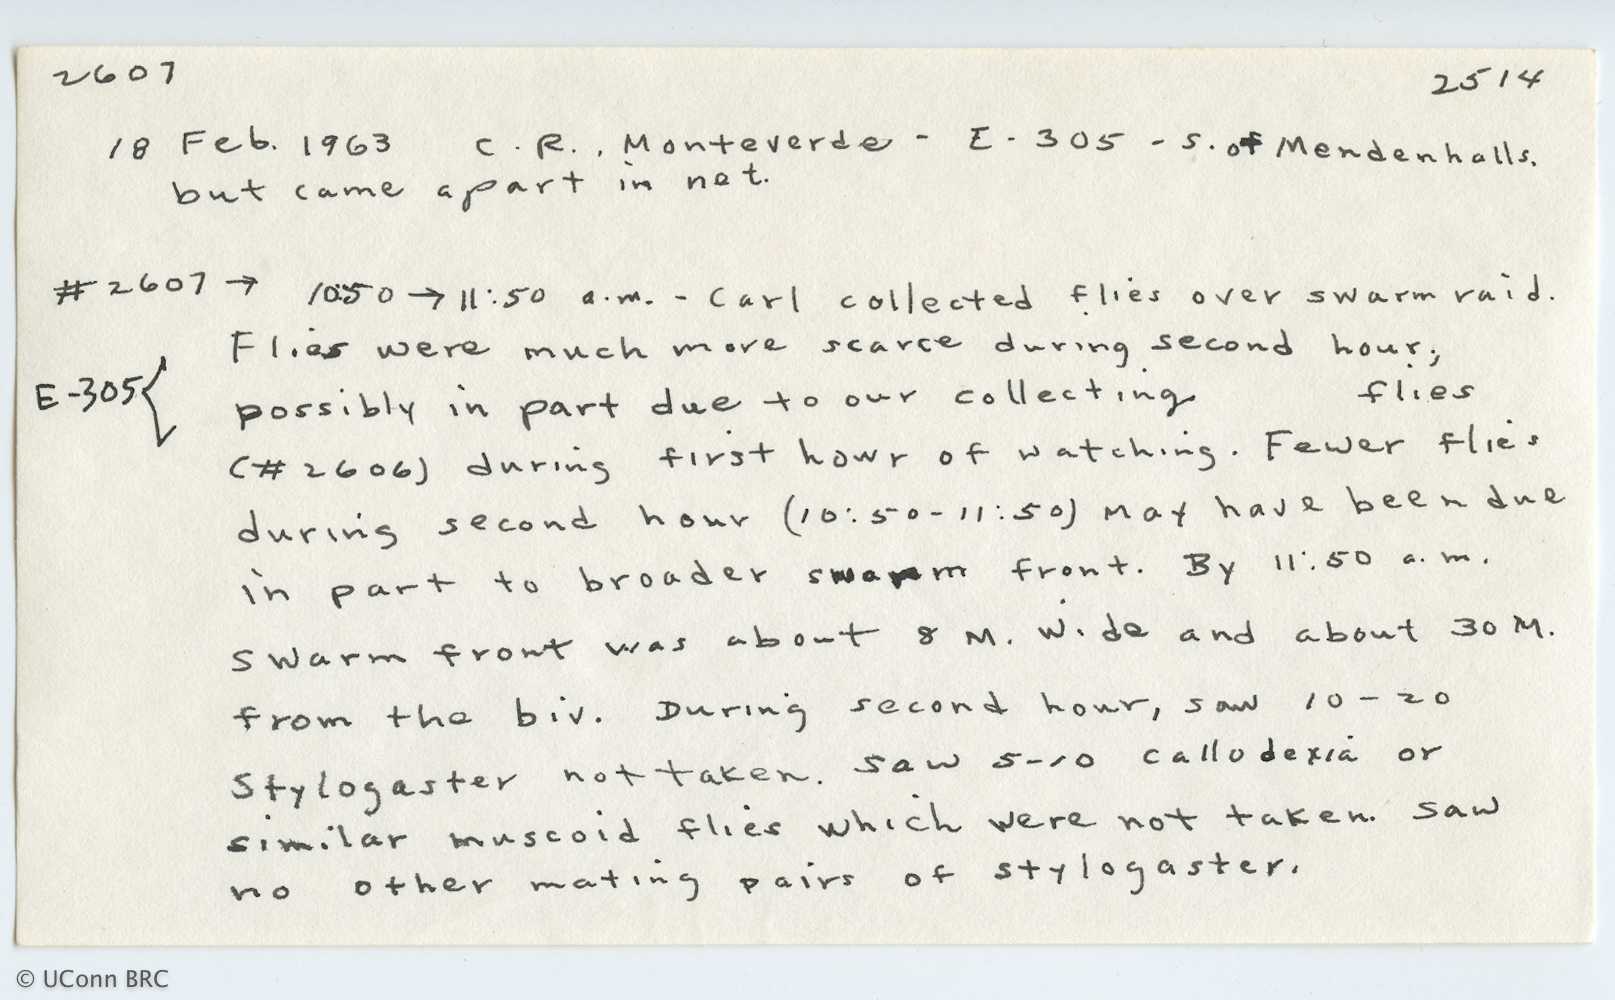 2607 2514
18 Feb. 1963 C.R., Monteverde - E-305 - S. of Mendenhalls.
but came apart in net.
#2607 → 1050 → 11:50 a.m. - Carl collected flies over swarm raid.
Flies were much more scarce during second hour;
E-305 { possibly in part due to our collecting flies
(#2606) during first hour of watching. Fewer flies
during second hour (10:50-11:50) may have been due
in part to broader swarm front. By 11:50 a.m.
swarm front was about 8 M. wide and about 30 M.
from the biv. During second hour, saw 10-20
Stylogaster not taken. Saw 5-10 callodexia or
similar muscoid flies which were not taken. Saw
no other mating pairs of stylogaster.
© UConn BRC